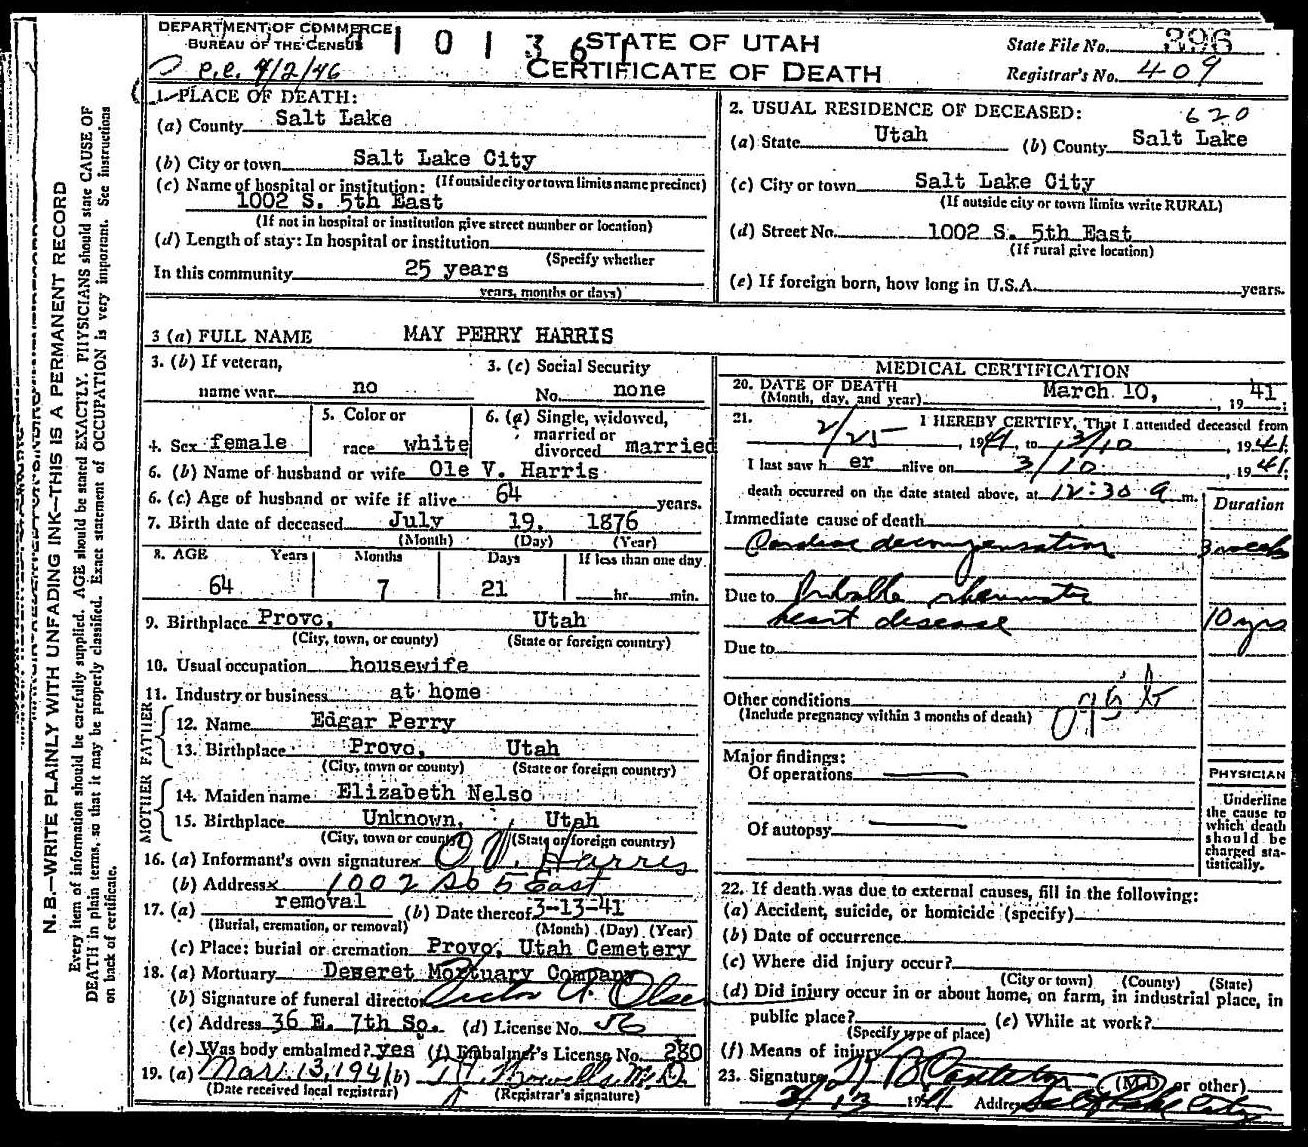 DEPARTMENT OF COMMERCE
BUREAU OF THE CENSUS
1 0 1 3 6 1
STATE OF UTAH
CERTIFICATE OF DEATH
State File No. 396
Registrar's No. 409
p.e. 4/2/46
1. PLACE OF DEATH:
(a) County Salt Lake
(b) City or town Salt Lake City
(If outside city or town limits name precinct)
(c) Name of hospital or institution:
1002 S. 5th East
(If not in hospital or institution give street number or location)
(d) Length of stay: In hospital or institution
(Specify whether
In this community 25 years
years, months or days)
2. USUAL RESIDENCE OF DECEASED:
620
(a) State Utah (b) County Salt Lake
(c) City or town Salt Lake City
(If outside city or town limits write RURAL)
(d) Street No. 1002 S. 5th East
(If rural give location)
(e) If foreign born, how long in U.S.A. years.
3 (a) FULL NAME MAY PERRY HARRIS
3. (b) If veteran, name war no
3. (c) Social Security No. none
4. Sex female
5. Color or race white
6. (a) Single, widowed, married or divorced married
6. (b) Name of husband or wife Ole V. Harris
6. (c) Age of husband or wife if alive 64 years.
7. Birth date of deceased July 19, 1876
(Month) (Day) (Year)
8. AGE Years Months Days If less than one day
64 7 21 hr. min.
9. Birthplace Provo, Utah
(City, town, or county) (State or foreign country)
10. Usual occupation housewife
11. Industry or business at home
FATHER
12. Name Edgar Perry
13. Birthplace Provo, Utah
(City, town or county) (State or foreign country)
MOTHER
14. Maiden name Elizabeth Nelso
15. Birthplace Unknown, Utah
(City, town or county) (State or foreign country)
16. (a) Informant's own signature x O V. Harris
(b) Address x 1002 So 5 East
17. (a) removal (b) Date thereof 3-13-41
(Burial, cremation, or removal) (Month) (Day) (Year)
(c) Place: burial or cremation Provo, Utah Cemetery
18. (a) Mortuary Deseret Mortuary Company
(b) Signature of funeral director Victor A. Olsen
(c) Address 36 E. 7th So. (d) License No. 56
(e) Was body embalmed? yes (f) Embalmer's License No. 280
19. (a) Mar. 13, 1941 (b) M.D.
(Date received local registrar) (Registrar's signature)
MEDICAL CERTIFICATION
20. DATE OF DEATH March 10, 1941;
(Month, day, and year)
21. I HEREBY CERTIFY, That I attended deceased from
2/25 1941, to 3/10, 1941;
I last saw her alive on 3/10, 1941;
death occurred on the date stated above, at 12:30 a m.
Duration
Immediate cause of death
Cardiac decompensation 3 weeks
Due to Probable rheumatic
heart disease 10 yrs
Due to
Other conditions
(Include pregnancy within 3 months of death)
095 b
Major findings:
Of operations
Of autopsy
PHYSICIAN
Underline the cause to which death should be charged statistically.
22. If death was due to external causes, fill in the following:
(a) Accident, suicide, or homicide (specify)
(b) Date of occurrence
(c) Where did injury occur?
(City or town) (County) (State)
(d) Did injury occur in or about home, on farm, in industrial place, in
public place? (e) While at work?
(Specify type of place)
(f) Means of injury
23. Signature (M.D. or other)
3/13 1941 Address Salt Lake City
N. B.—WRITE PLAINLY WITH UNFADING INK—THIS IS A PERMANENT RECORD
Every item of information should be carefully supplied. AGE should be stated EXACTLY. PHYSICIANS should state CAUSE OF
DEATH in plain terms, so that it may be properly classified. Exact statement of OCCUPATION is very important. See instructions
on back of certificate.